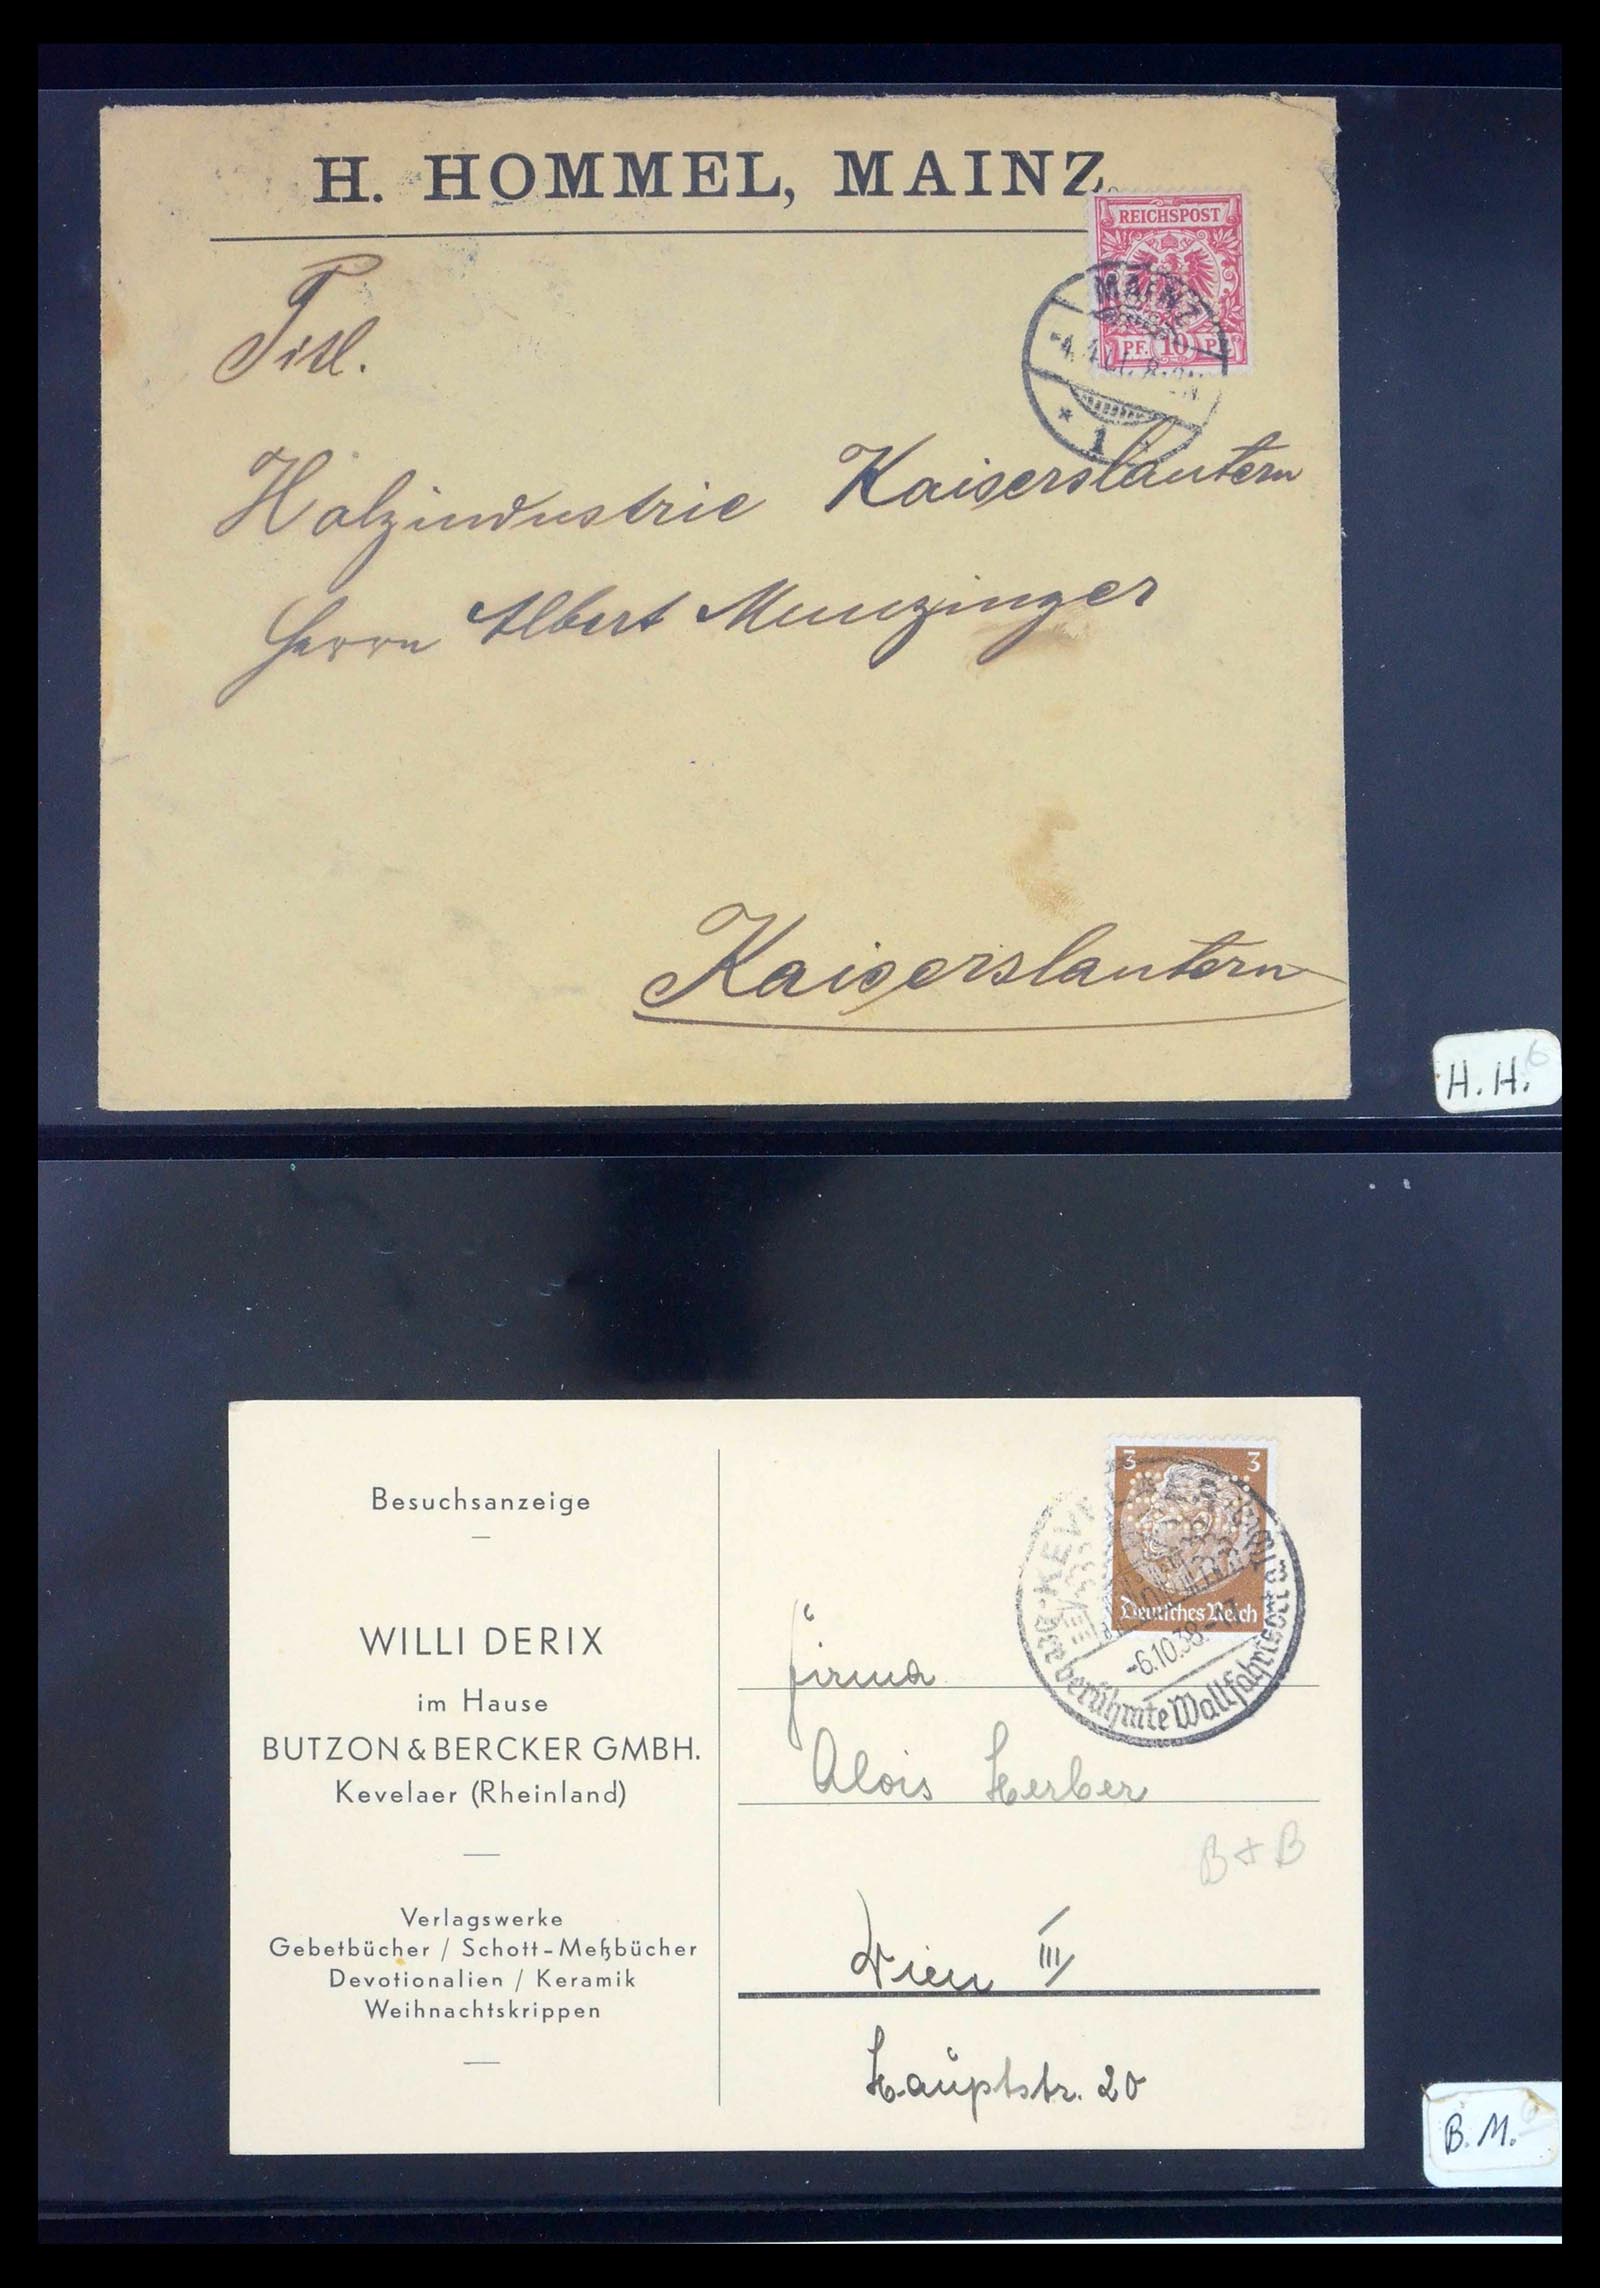 H. HOMMEL, MAINZ.
REICHSPOST
PF. 10 PF.
MAINZ
1
Titl.
Holzindustrie Kaiserslautern
Herrn Albert Munzinger
Kaiserslautern
H. H.
Besuchsanzeige
WILLI DERIX
im Hause
BUTZON & BERCKER GMBH.
Kevelaer (Rheinland)
Verlagswerke
Gebetbücher / Schott-Meßbücher
Devotionalien / Keramik
Weihnachtskrippen
3 3
Deutsches Reich
-6.10.38
der berühmte Wallfahrtsort
Firma
Alois Herber
B & B
Wien III/
Hauptstr. 20
B. M.